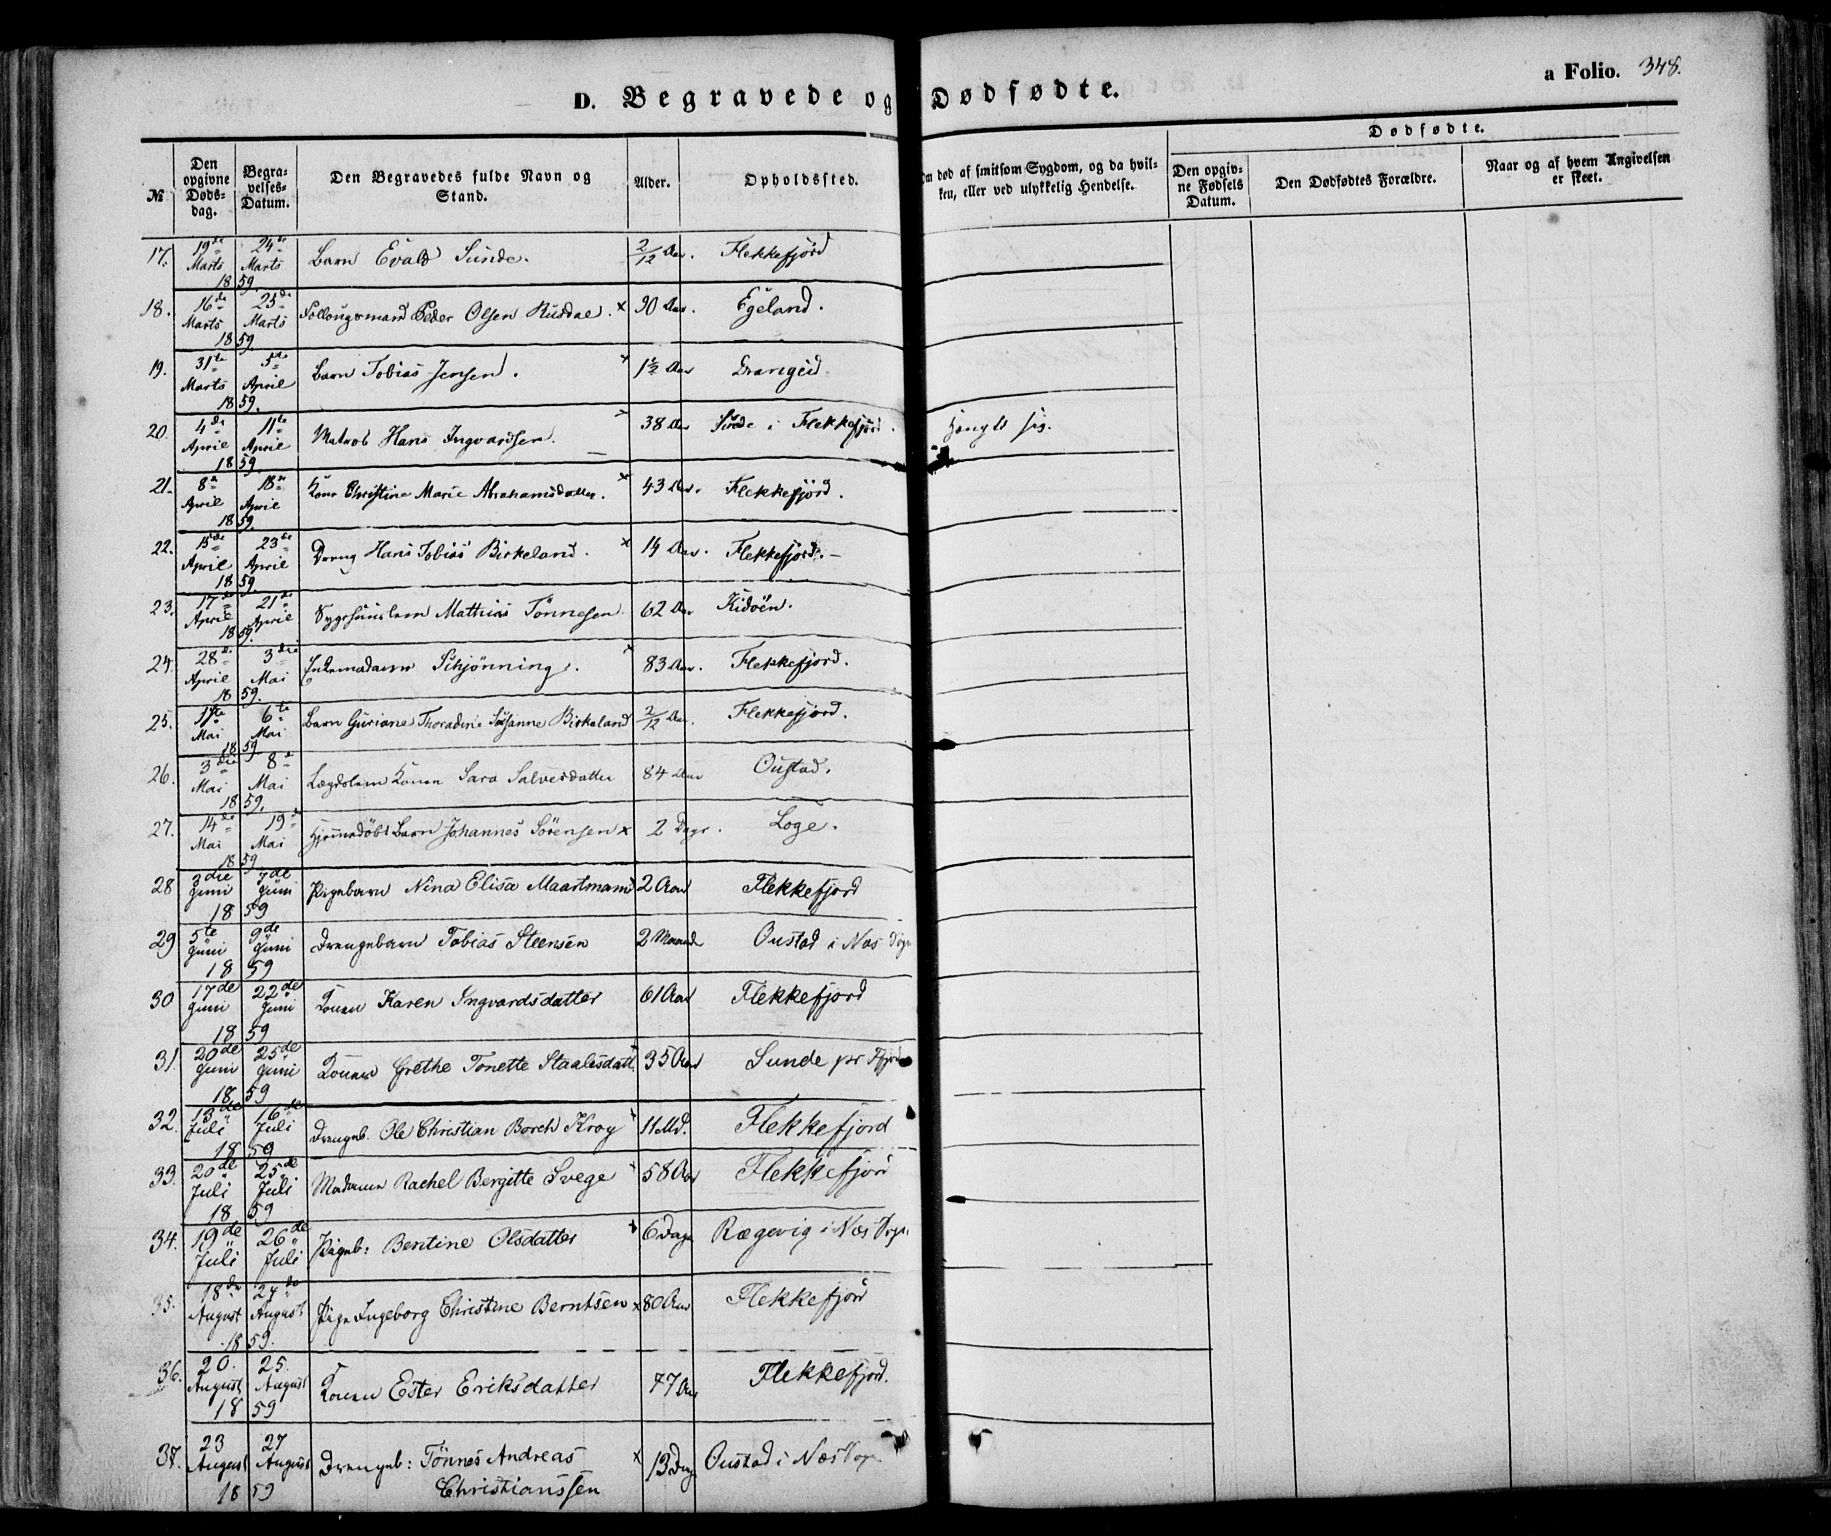 a Folio. 348.
D. Begravede og Dødfødte.
№
Den opgivne Døds-dag.
Begra-velses-Datum.
Den Begravedes fulde Navn og Stand.
Alder.
Opholdssted.
Om død af smitsom Sygdom, og da hvil-ken, eller ved ulykkelig Hendelse.
Dødfødte.
Den opgiv-ne Fødsels Datum.
Den Dødfødtes Forældre.
Naar og af hvem Angivelsen er skeet.
17. 19de Marts 24de Marts 1859. Barn Evald Sunde. 2/12 Aar. Flekkefjord
18. 16de Marts 25de Marts 1859 Follougsmand Peder Olsen Rusdal. x 90 Aar. Egeland.
19. 31te Marts 5te April 1859. Barn Tobias Jensen. 1½ Aar Drangeid
20. 4de April 11te April 1859 Matros Hans Ingvardsen. 38 Aar Sunde i Flekkefjord. Hængte sig.
21. 8de April 18de April 1859. Kone Christine Marie Abrahamsdatter. x 43 Aar. Flekkefjord.
22. 15de April 23de April 1859. Dreng Hans Tobias Birkeland. x 14 Aar. Flekkefjord.
23. 17de April 21de April 1859. Mathias Tönnesen 62 Aar Kidöen.
24. 28de April 3die Mai 1859. Enkemadame Schjönning. 83 Aar. Flekkefjord.
25. Mai 6te Mai 1859 Barn Guriane Thoradine Susanne Birkeland 2/12 Aar. Flekkefjord.
26. 3die Mai 8de Mai 1859. Lægdslem Konen Sara Salvesdatter 84 Aar Oustad.
27. 14de Mai 19de Mai 1859 Hjemmedöbt Barn Johannes Sörensen x 2 Dage. Loge.
28 3die Juni 7de Juni 1859 Pigebarn Nina Elisa Maartmann 2 Aar Flekkefjord
29 5te Juni 9de Juni 1859 Drengebarn Tobias Steensen 2 Maaneder Oustad i Næs Sogn
30 17de Juni 22de Juni 1859 Konen Karen Ingvardsdatter 61 Aar Flekkefjord
31. 20de Juni 25de Juni 1859 Konen Grethe Tonette Staalesdatt. 35 Aar Sunde pr Ffjord
32. 13de Juli 16de Juli 1859 Drengeb. Ole Christian Borch Krog 11 Md. Flekkefjord
33. 20de Juli 25de Juli 1859 Madame Rachel Bergitte Svege 58 Aar Flekkefjord
34. 19de Juli 26de Juli Pigeb: Bentine Olsdatter 6 Dage Rægevig i Næs Sogn
35. 18de August August 1859. Pige Ingeborg Christine Berntsen x 80 Aar Flekkefjord
36. 20. August 25. August 1859 Konen Ester Eriksdatter 77 Aar Flekkefjord.
37. 23 August 27 August 1859 Drengeb: Tönnes Andreas Christianssen x 13 Dage Oustad i Næs Sogn